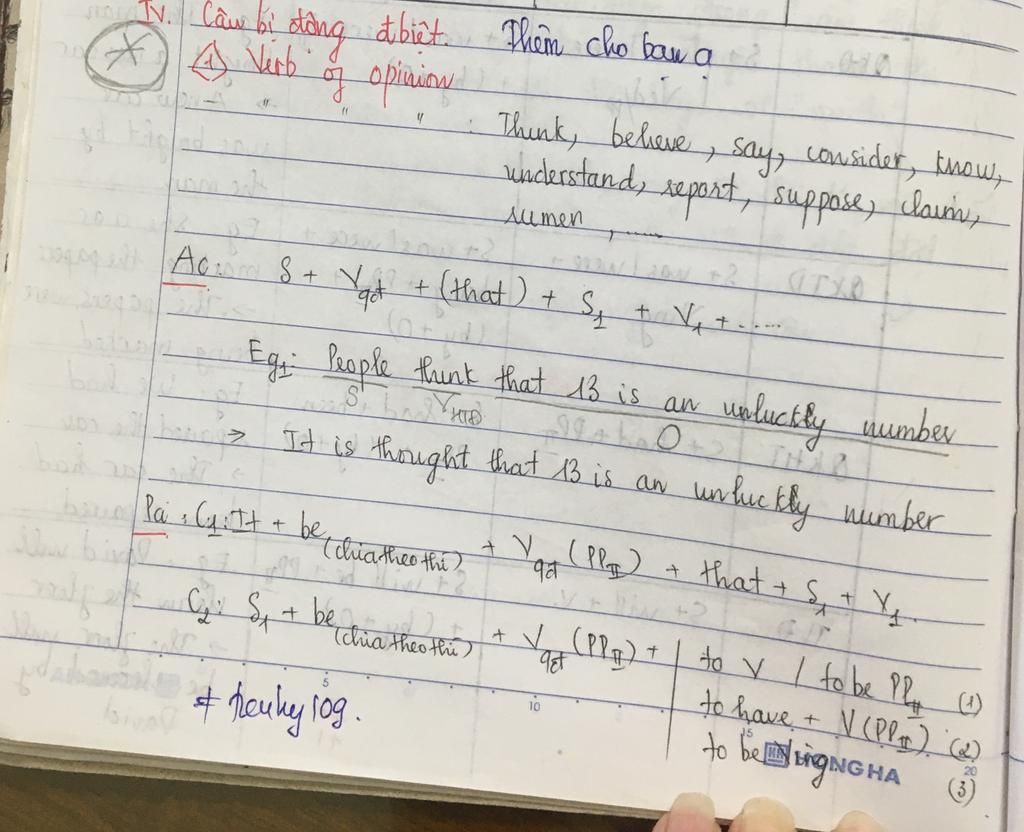 IV. Câu bị động đbiệt. Thêm cho bạn ạ
① Verb of opinion
- " " " : Think, believe, say, consider, know,
understand, report, suppose, claim,
rumen, .....
Ac: S + Vqđt + (that) + S1 + V1 + .....
Eg1: People think that 13 is an unluckly number
S VHTĐ O
⇒ It is thought that 13 is an unluckly number
Pa : C1: It + be (chia theo thì) + Vqđt (PPII) + that + S1 + V1.
C2: S1 + be (chia theo thì) + Vqđt (PPII) + to V / to be PPII (1)
to have + V(PPII) (2)
to be Ving (3)
5 10 15 20
NGHA